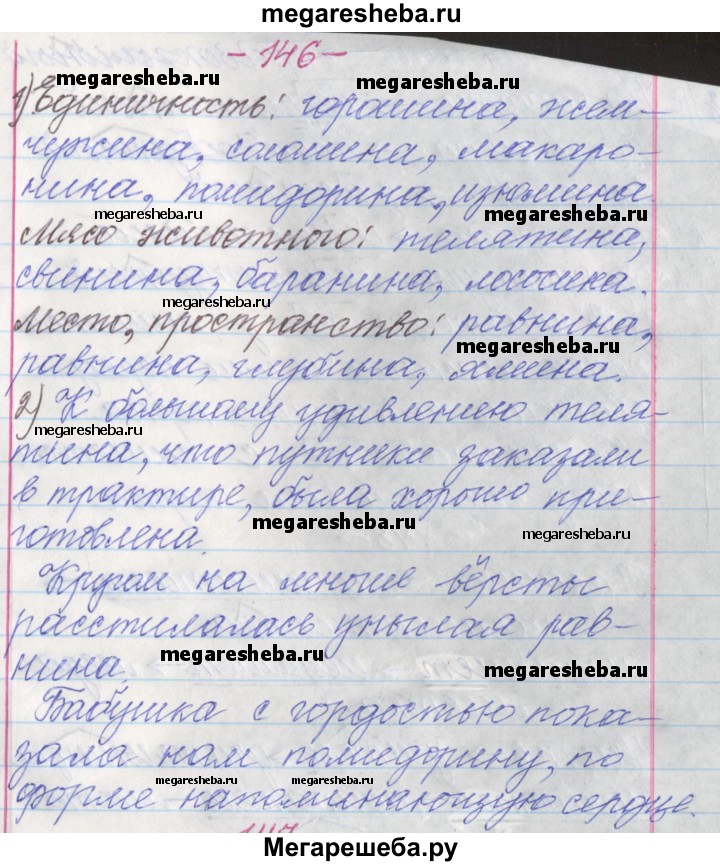 megaresheba.ru
- 146 -
megaresheba.ru megaresheba.ru
1) Единичность: горошина, жем-
чужина, соломина, макаро-
нина, помидорина, изюмина.
megaresheba.ru megaresheba.ru
Мясо животного: телятина,
свинина, баранина, лососина.
megaresheba.ru
Место, пространство: равнина,
megaresheba.ru
равнина, глубина, ямина.
2) К большому удивлению теля-
megaresheba.ru
тина, что путники заказали
в трактире, была хорошо при-
megaresheba.ru megaresheba.ru
готовлена.
Кругом на многие вёрсты
расстилалась унылая рав-
megaresheba.ru megaresheba.ru
нина.
Бабушка с гордостью пока-
зала нам помидорину, по
megaresheba.ru megaresheba.ru
форме напоминающую сердце.
147
Мегарешеба.ру